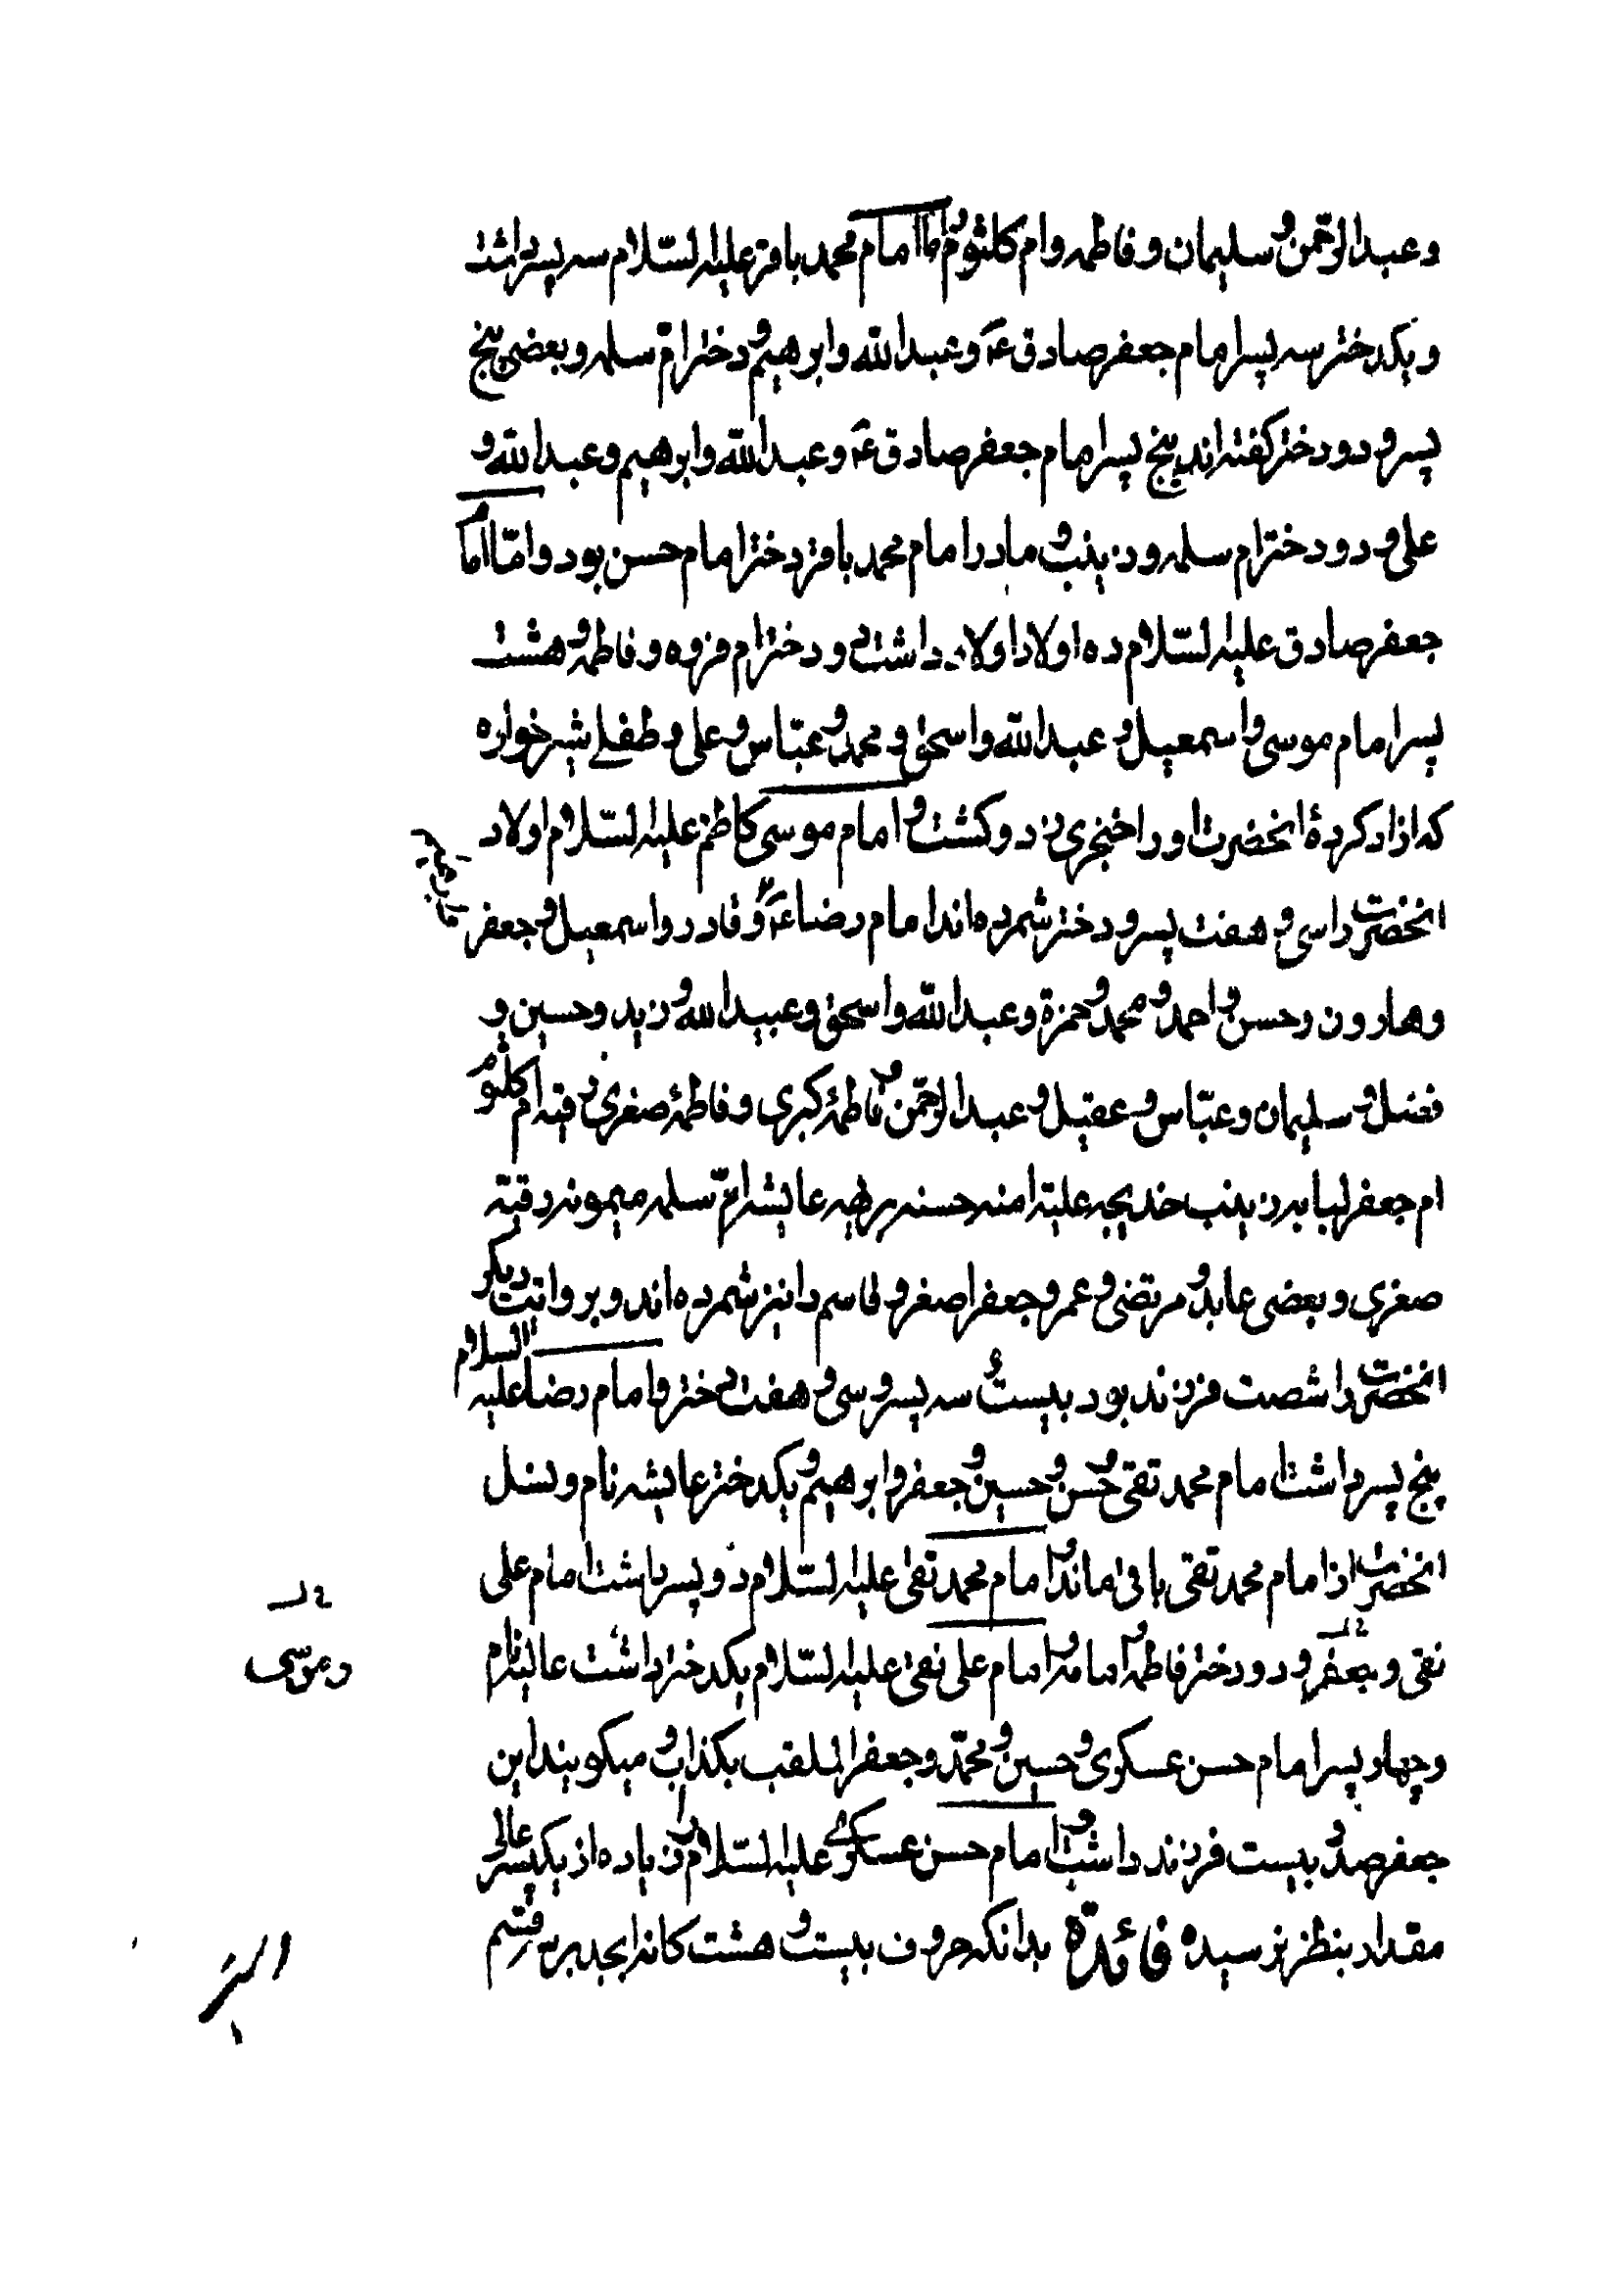 و عبد الرحمن و سلیمان و فاطمه و ام کلثوم و اما امام محمد باقر علیه السّلام سه پسر داشت
و یکدختر سه پسر امام جعفر صادق ع و عبد الله و ابرهیم و دختر امّ سلمه و بعضی پنج
پسر و دو دختر کفته اند پنج پسر امام جعفر صادق ع و عبد الله و ابرهیم و عبد الله و
علی و دو دختر ام سلمه و زینب و مادر امام محمد باقر دختر امام حسن بود و امّا امام
جعفر صادق علیه السّلام ده اولاد اولاد داشت دو دختر ام فروه و فاطمه و هشت
پسر امام موسی و اسمعیل و عبد الله و اسحق و محمد و عبّاس و علی و طفلے شیر خواره
که ازاد کردهٔ انحضرت او را خنجری زد و کشت و امام موسی کاظم علیه السّلام اولاد
انحضرت را سی و هفت پسر و دختر شمرده اند امام رضا ع و قادر و اسمعیل و جعفر
و هارون و حسن و احمد و محمد و حمزة و عبد الله و اسحق و عبید الله و زید و حسین و
فضل و سلیمان و عبّاس و عقیل و عبد الرحمّن و فاطمهٔ کبری و فاطمهٔ صغری رقیه ام کلثوم
ام جعفر لبابه زینب خدیجه علیّه امنه حسنه بریهه عایشه امّ سلمه میمونه رقیّه
صغری و بعضی عابد و مرتضی و عمر و جعفر اصغر و قاسم را نیز شمرده اند و بروایت دیکر
انحضرت را شصت فرزند بود بیست و سه پسر و سی و هفت دختر و امام رضا علیه السلام
پنج پسر داشت امام محمد تقی و حسن و حسین و جعفر و ابرهیم و یکدختر عایشه نام و نسل
انحضرت از امام محمد تقی باقی ماند و اما امام محمد تقی علیه السّلام دو پسر داشت امام علی
نقی و جعفر و دو دختر فاطمه و امامه و اما امام علی نقی علیه السّلام یکدختر داشت عالیه نام
و موسی
و چهار پسر امام حسن عسکری و حسین و محمّد و جعفر الملقب بکذاب و میکویند این
جعفر صد و بیست فرزند داشت و اما امام حسن عسکرے علیه السّلام را زیاده از یک پسر عالی
مقدار بنظر نرسیده فائدة بدانکه حروف بیست و هشت کانه ابجد بر سه قسم